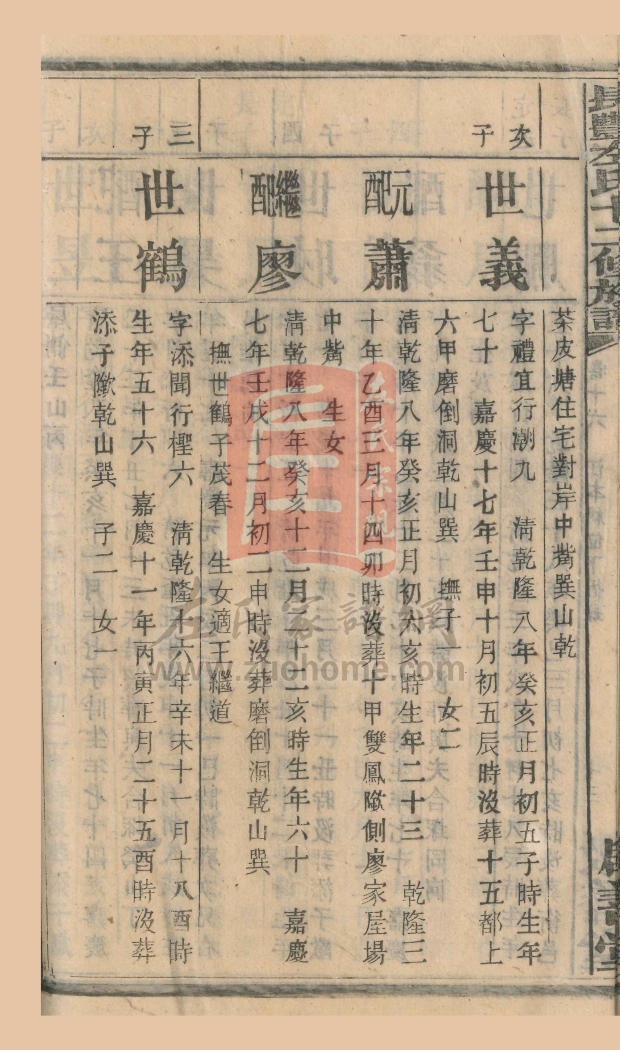 長豐左氏十二修族譜
茶皮塘住宅對岸中嘴巽山乾
次子
世義
字禮宜行潮九　清乾隆八年癸亥正月初五子時生年
七十　嘉慶十七年壬申十月初五辰時沒葬十五都上
六甲磨倒洞乾山巽　撫子一　女二
元配
蕭
清乾隆八年癸亥正月初六亥時生年二十三　乾隆三
十年乙酉三月十四卯時沒葬十甲雙鳳歟側廖家屋場
中嘴　生女一
繼配
廖
清乾隆八年癸亥十二月二十二亥時生年六十　嘉慶
七年壬戌十二月初二申時沒葬磨倒洞乾山巽
撫世鶴子茂春　生女適王繼道
三子
世鶴
字添聞行檉六　清乾隆十六年辛未十一月十八酉時
生年五十六　嘉慶十一年丙寅正月二十五酉時沒葬
添子歟乾山巽　子二　女一
左氏家譜網
www.zuohome.com